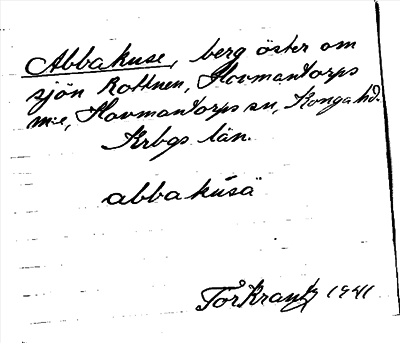 Abbakuse, berg öster om
sjön Rottnen, Hovmantorps
m:e, Hovmantorps sn, Konga hd.
Krbgs län.
abbakusä
Tor Krantz 1941